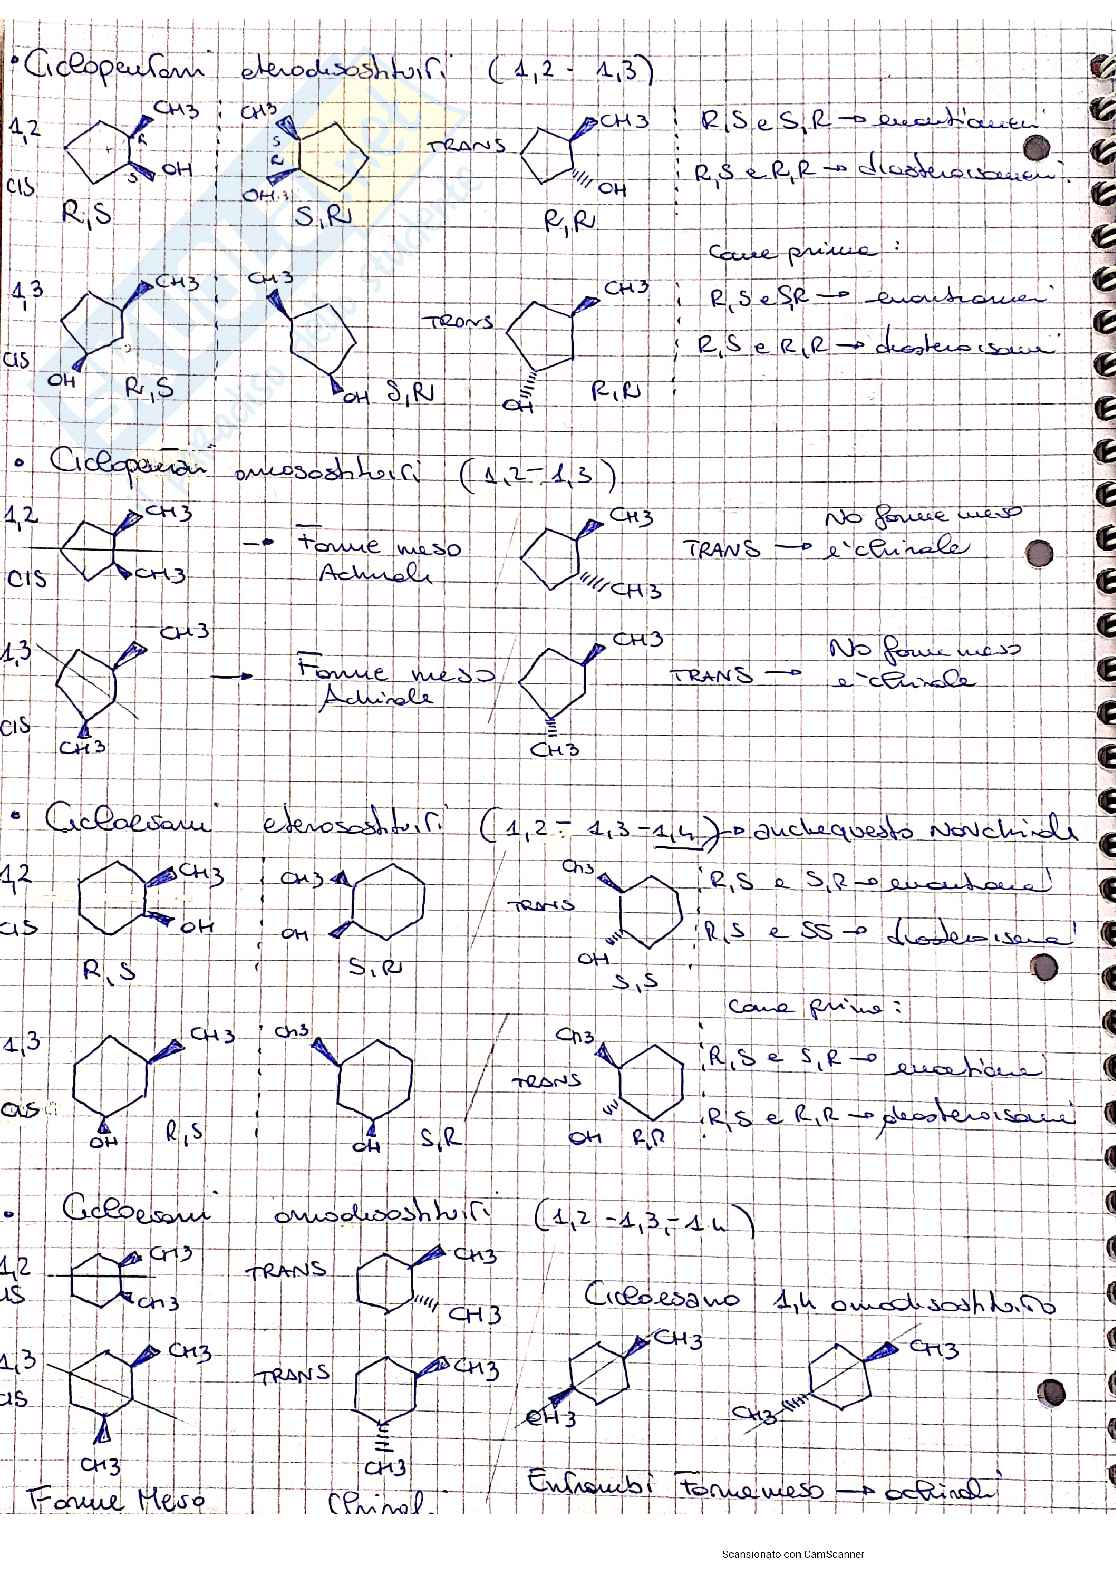 • Ciclopentani eterodisostituiti (1,2 - 1,3)
1,2 CH3 R S OH CH3 S R OH TRANS CH3 OH R,S e S,R → enantiomeri
cis R,S S,R R,R R,S e R,R → diasteroisomeri
Come prima:
1,3 CH3 CH3 TRANS CH3 R,S e S,R → enantiomeri
cis OH R,S OH S,R OH R,R R,S e R,R → diasteroisomeri
• Ciclopentani omosostituiti (1,2 - 1,3)
1,2 CH3 → Forme meso CH3 TRANS → No forme meso
cis CH3 Achirali CH3 è chirale
1,3 CH3 → Forme meso CH3 TRANS → No forme meso
cis CH3 Achirale CH3 è chirale
• Cicloesani eterosostituiti (1,2 - 1,3 - 1,4) → anche questo non chirale
1,2 CH3 CH3 TRANS CH3 R,S e S,R → enantiomeri
cis OH OH OH R,S e SS → diasteroisomeri
R,S S,R S,S
Come prima:
1,3 CH3 CH3 TRANS CH3 R,S e S,R → enantiomeri
cis OH R,S OH S,R OH R,R R,S e R,R → diasteroisomeri
• Cicloesani omodisostituiti (1,2 - 1,3 - 1,4)
1,2 CH3 TRANS CH3
cis CH3 CH3 Cicloesano 1,4 omodisostituito
1,3 CH3 TRANS CH3 CH3 CH3
cis CH3 CH3 CH3 CH3
Forme Meso Chirali Entrambi Forme meso → achirali
Scansionato con CamScanner